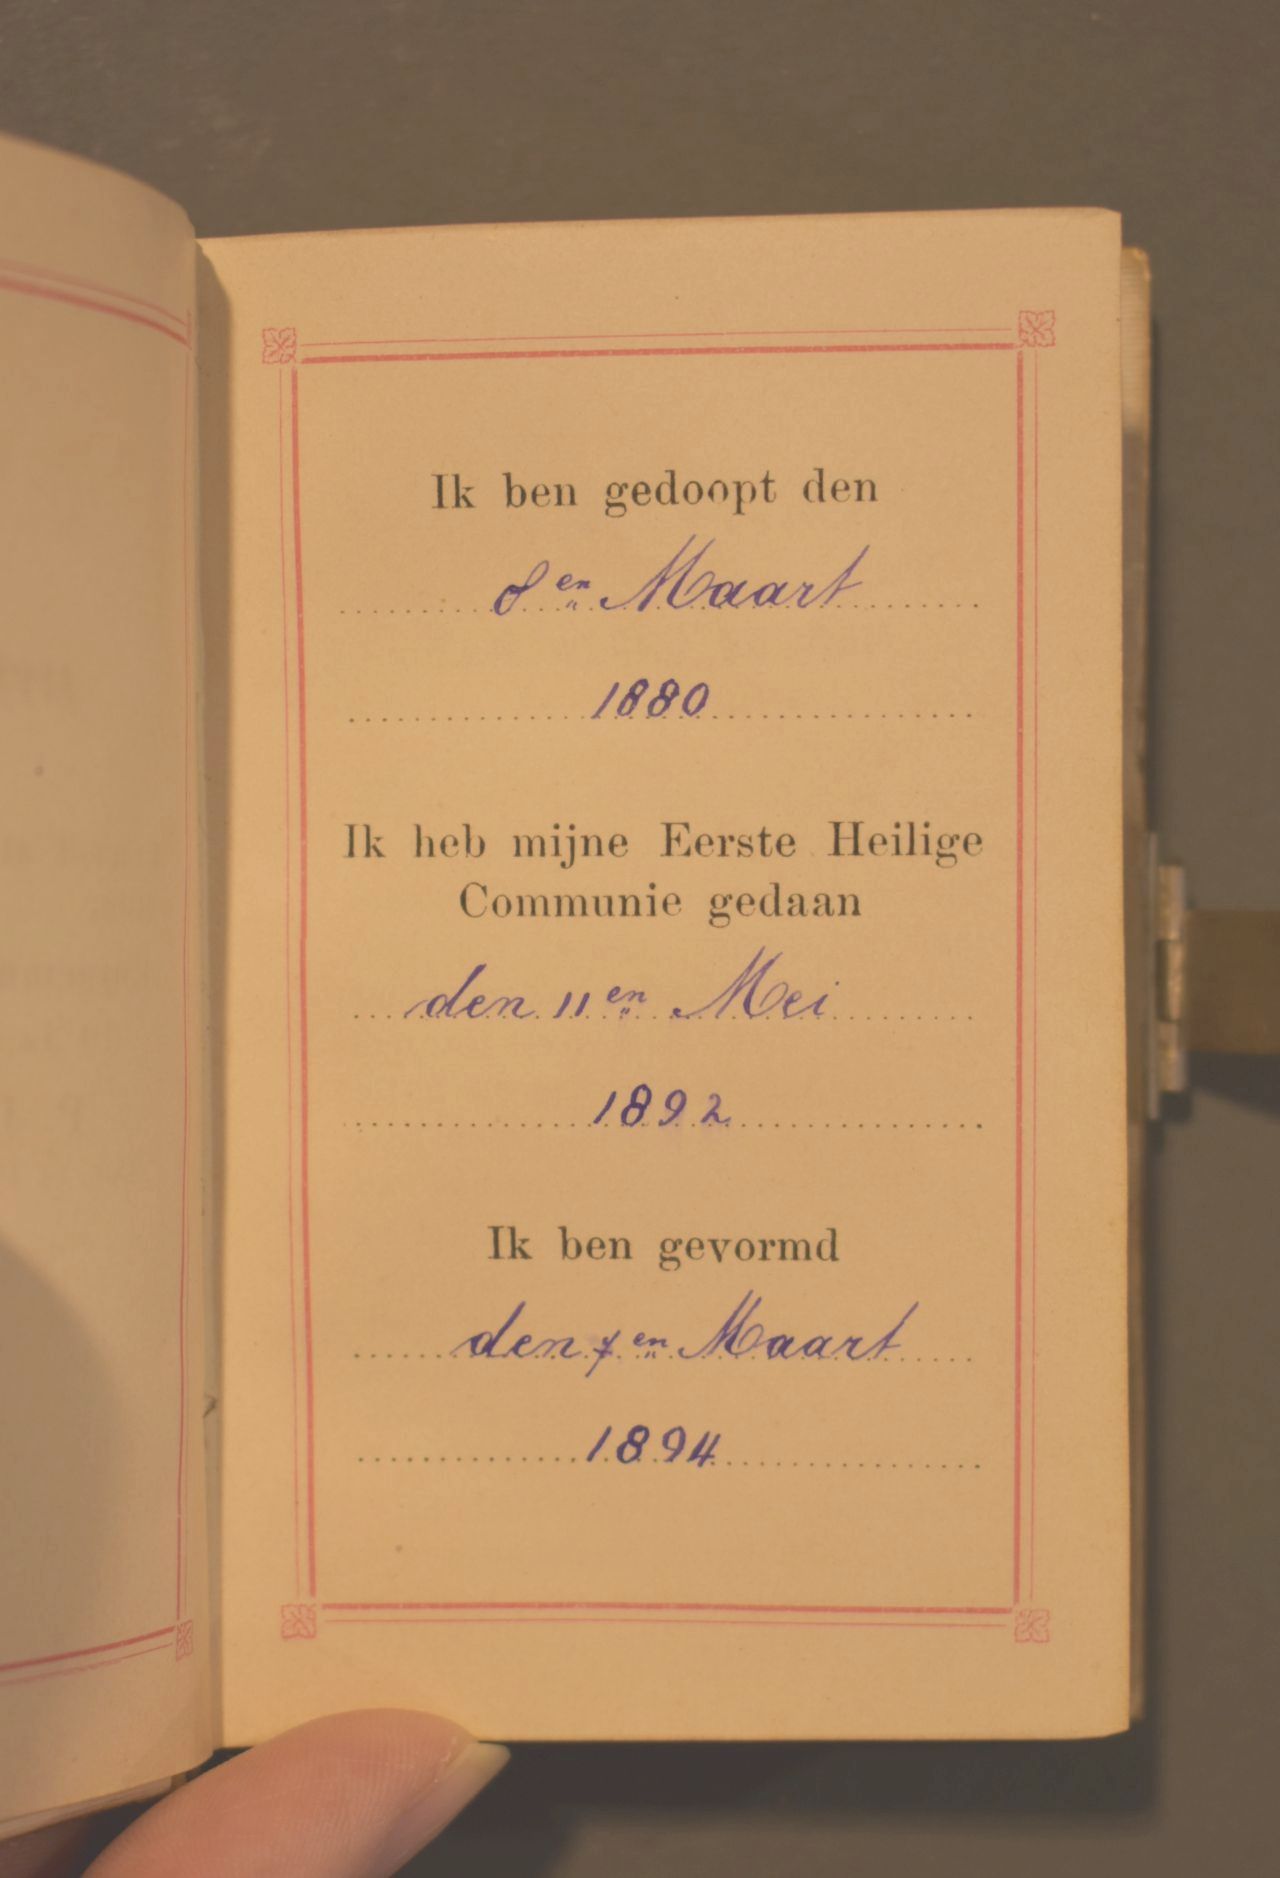 Ik ben gedoopt den
8en Maart
1880
Ik heb mijne Eerste Heilige
Communie gedaan
den 11en Mei
1892
Ik ben gevormd
den 7en Maart
1894